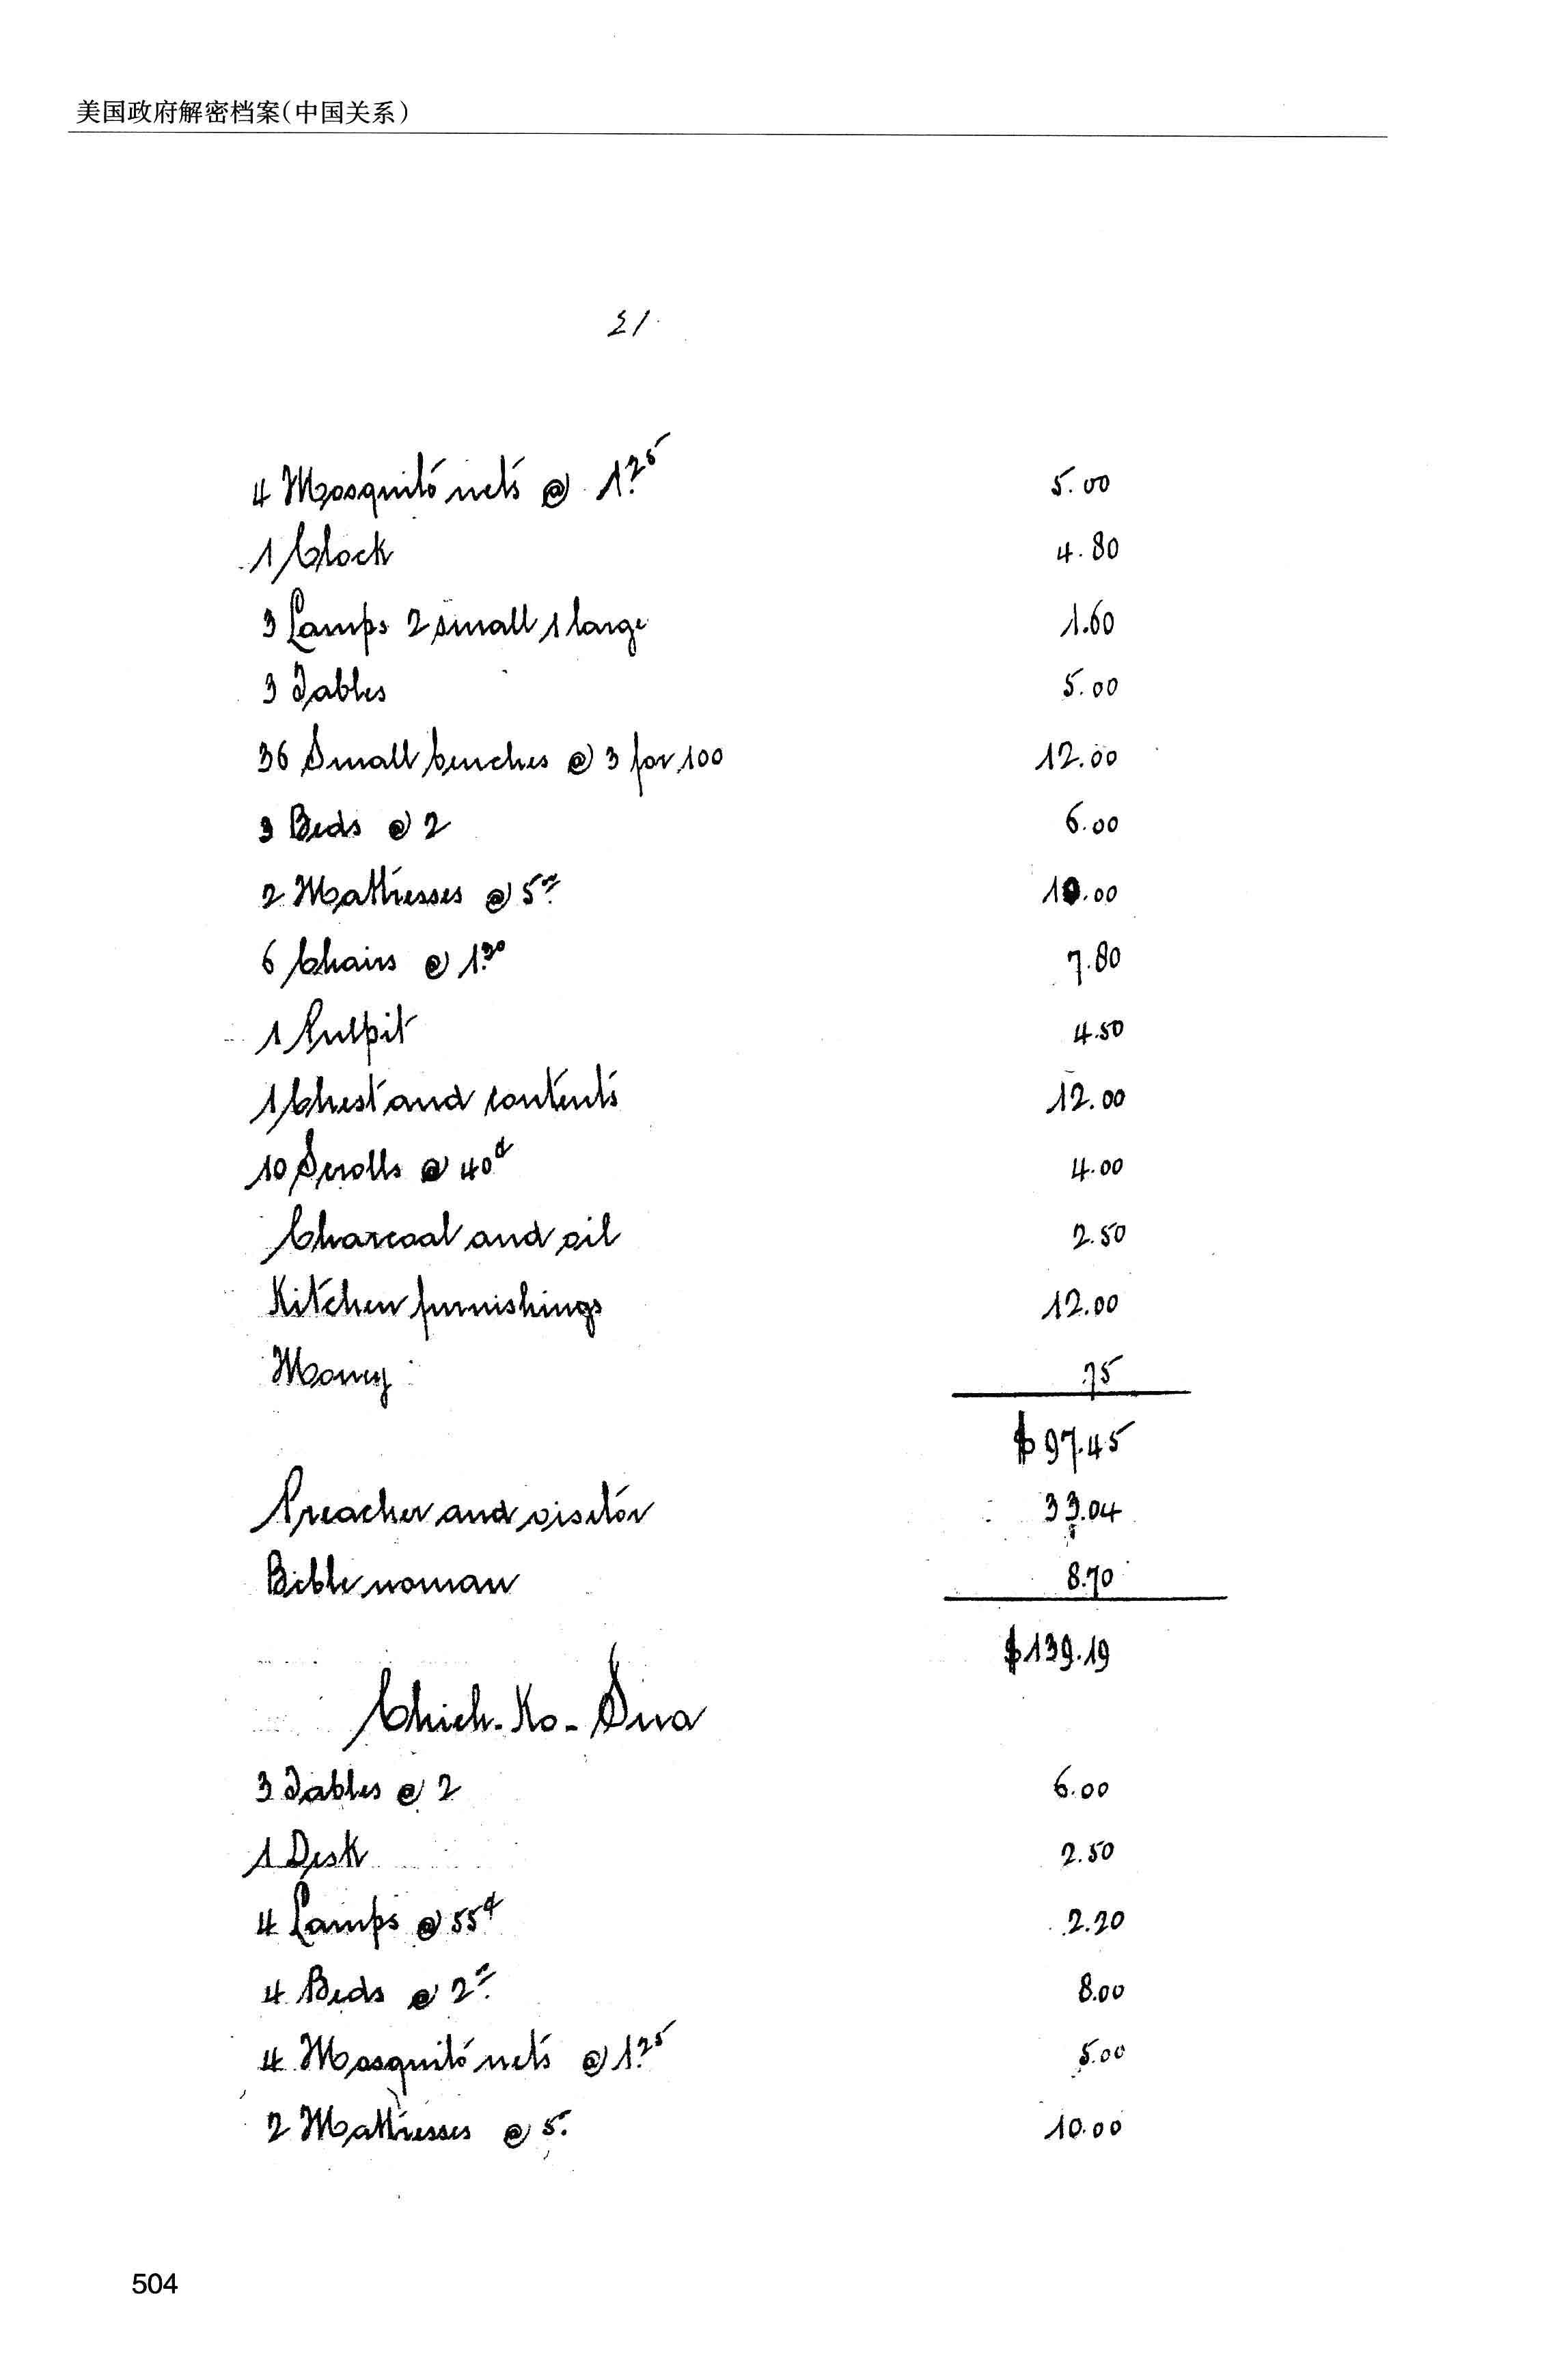 美国政府解密档案(中国关系)
21.
4 Mosquito nets @ 1.25 5.00
1 Clock 4.80
3 Lamps 2 small 1 large 1.60
3 Tables 5.00
36 Small benches @ 3 for 100 12.00
3 Beds @ 2 6.00
2 Mattresses @ 5.= 10.00
6 Chairs @ 1.30 7.80
1 Pulpit 4.50
1 Chest and contents 12.00
10 Scrolls @ 40¢ 4.00
Charcoal and oil 2.50
Kitchen furnishings 12.00
Money .75
$97.45
Preacher and visitor 33.04
Bible woman 8.70
$139.19
Chieh-Ko-Sua
3 Tables @ 2 6.00
1 Desk 2.50
4 Lamps @ 55¢ 2.20
4 Beds @ 2.= 8.00
4 Mosquito nets @ 1.25 5.00
2 Mattresses @ 5. 10.00
504